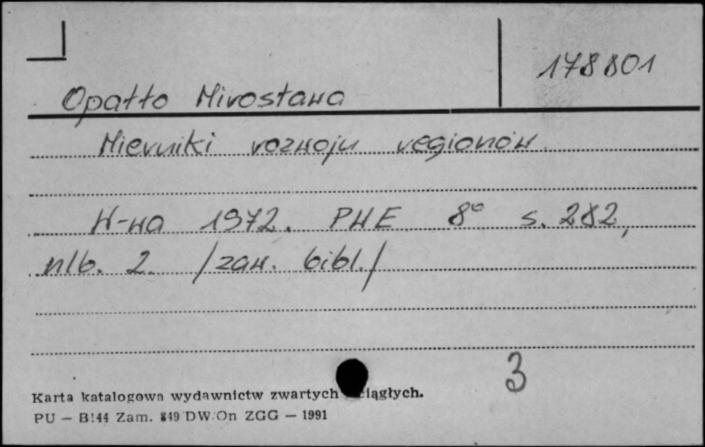 178801
Opałło Mirosława
Mierniki rozwoju regionów
W-wa 1972. PWE 8° s. 282,
nlb. 2. /zaw. bibl./
3
Karta katalogowa wydawnictw zwartych ciągłych.
PU — B144 Zam. 849 DW/On ZGG — 1991